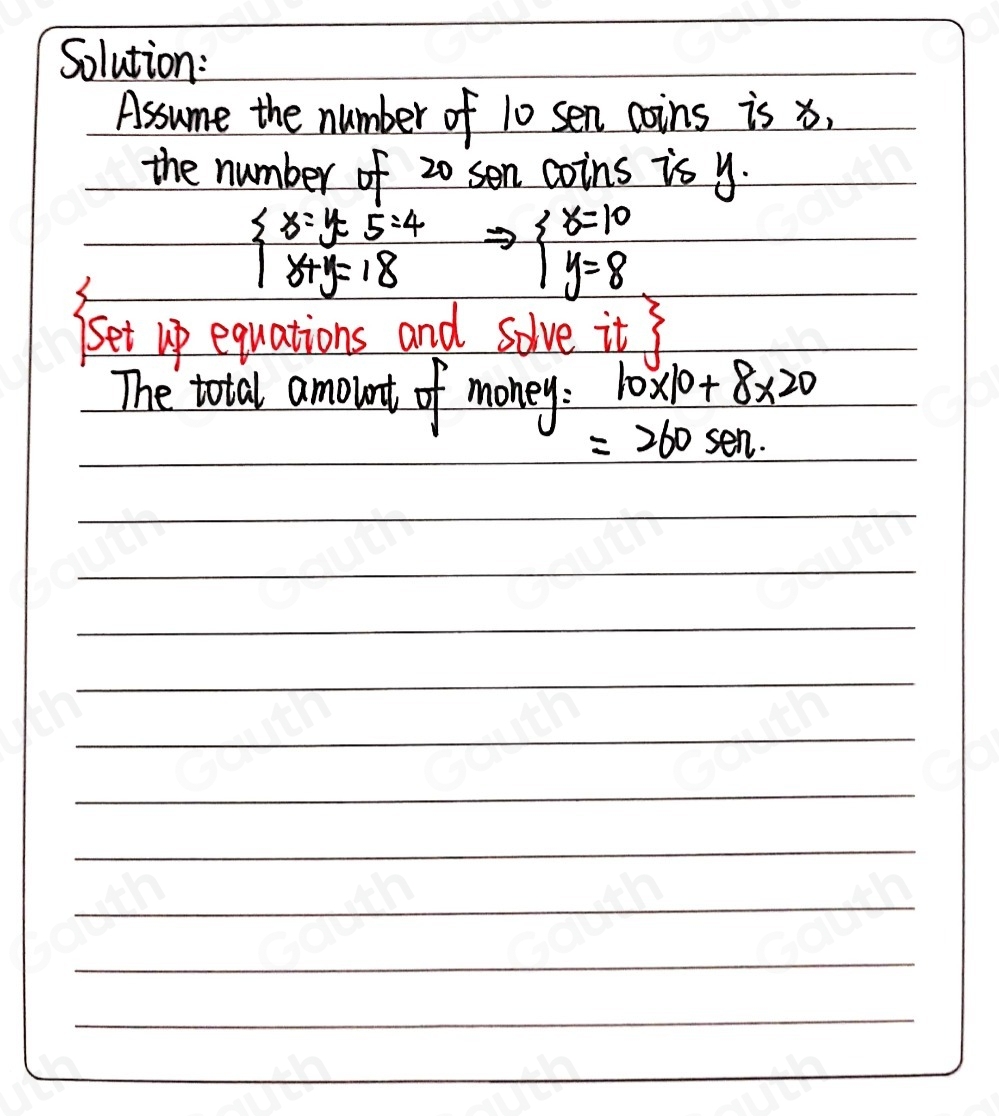 Solution:
Assume the number of 10 sen coins is x,
the number of 20 sen coins is y.
{ x:y=5:4 ⇒ { x=10
x+y=18 y=8
{Set up equations and solve it}
The total amount of money: 10×10+8×20
= 260 sen.
Gauth